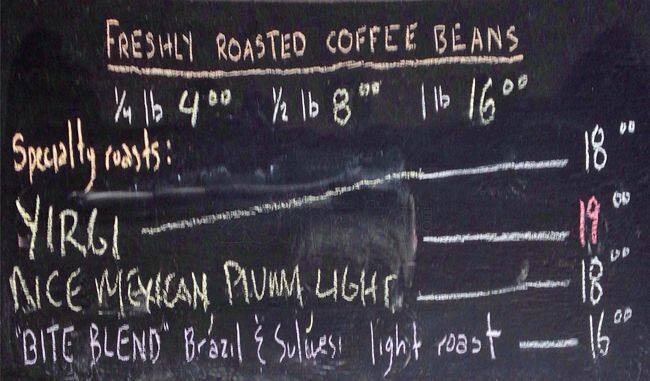 FRESHLY ROASTED COFFEE BEANS
1/4 lb 4.00 1/2 lb 8.00 1 lb 16.00
Specialty roasts: 18.00
YIRGI 19.00
NICE MEXICAN PLUMA LIGHT 18.00
"BITE BLEND" Brazil & Sulwesi light roast 16.00